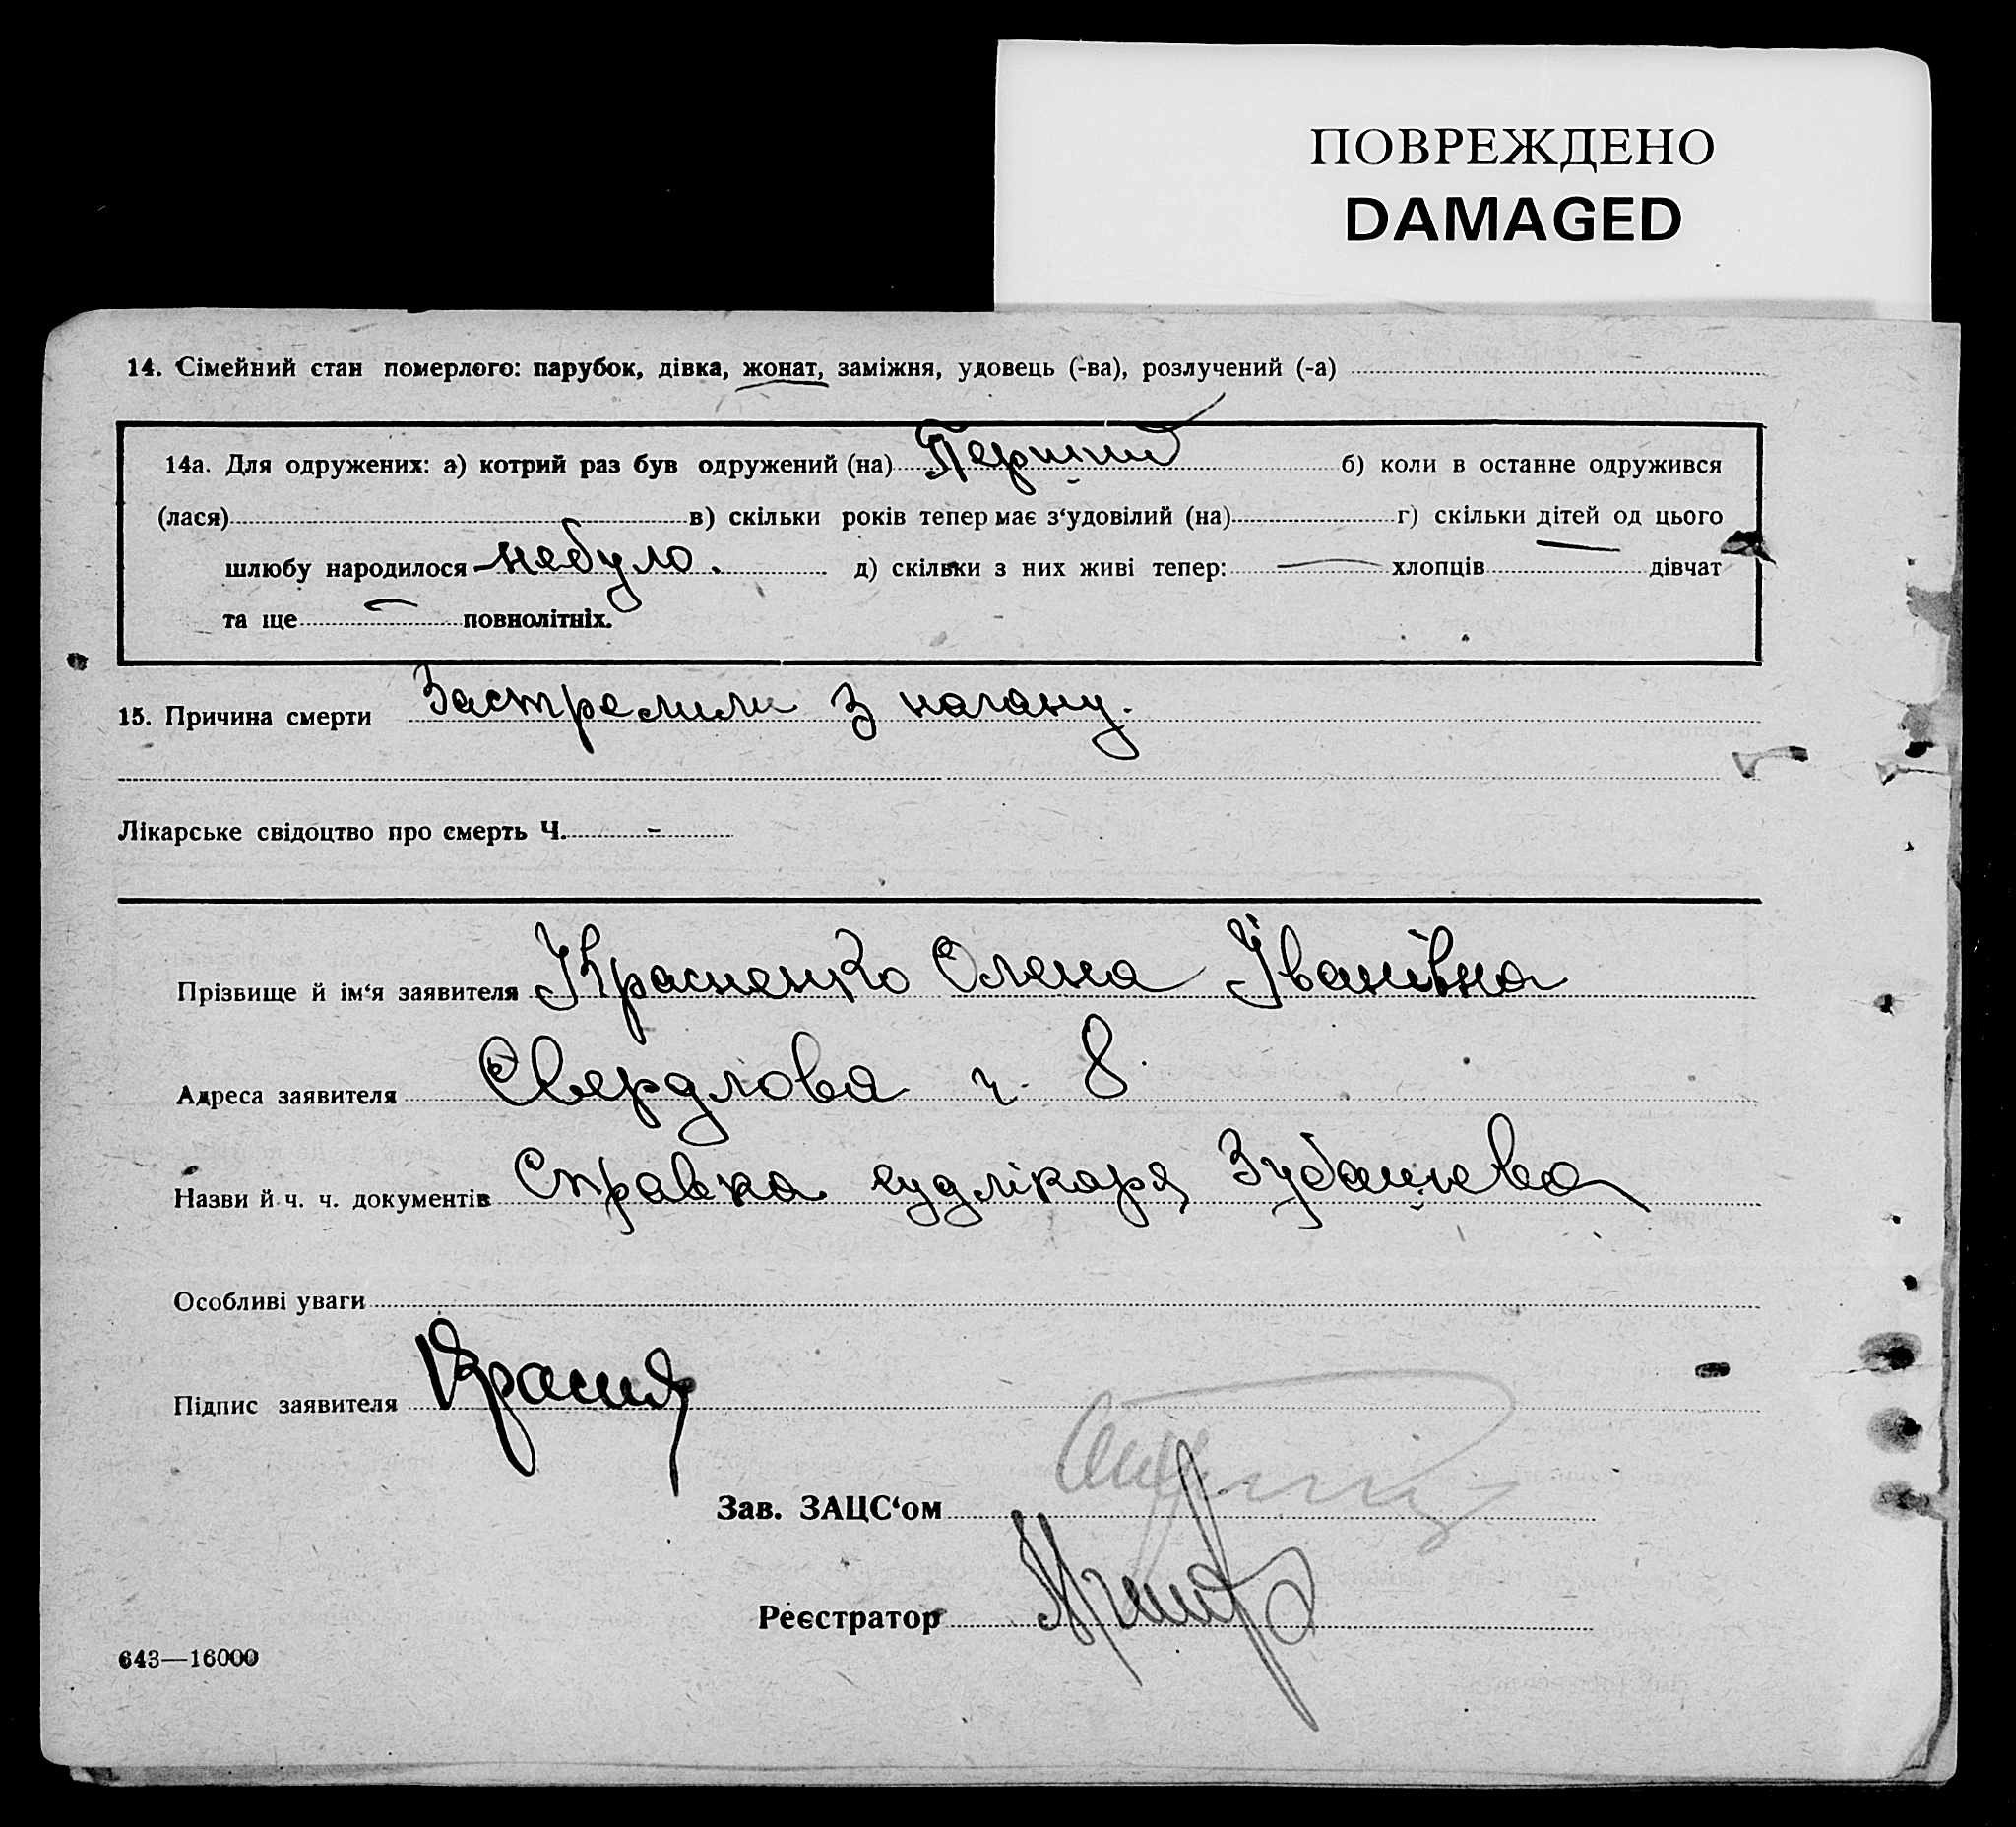 ПОВРЕЖДЕНО
DAMAGED
14. Сімейний стан померлого: парубок, дівка, жонат, заміжня, удовець (-ва), розлучений (-а)
14а. Для одружених: а) котрий раз був одружений (на) Перший б) коли в останне одружився
(лася) в) скільки років тепер має з‘удовілий (на) г) скільки дітей од цього
шлюбу народилося небуло. д) скільки з них живі тепер: — хлопців дівчат
та ще — повнолітніх.
15. Причина смерти Застрелили з нагану.
Лікарське свідоцтво про смерть Ч. -
Прізвище й ім‘я заявителя Красненко Олена Іванівна
Адреса заявителя Свердлова ч. 8
Назви й ч. ч. документів Справка судлікаря
Особливі уваги
Підпис заявителя
Зав. ЗАЦС‘ом
Реєстратор
643—16000